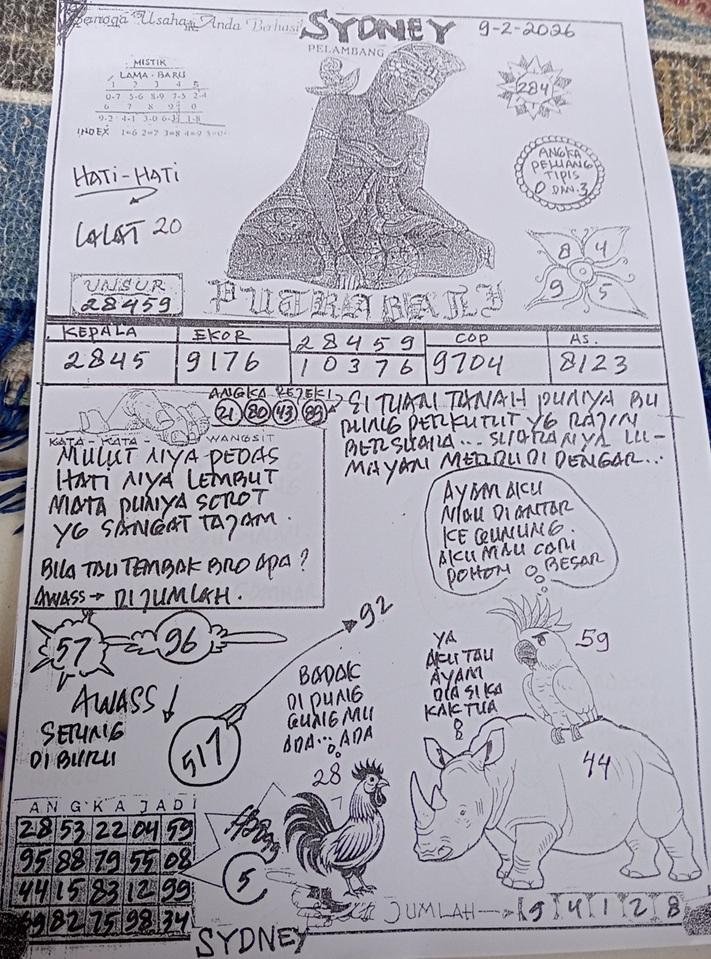 Semoga Usaha Anda Berhasil
SYDNEY
9-2-2026
PELAMBANG
MISTIK
LAMA - BARU
1 2 3 4 5
0-7 5-6 8-9 7-5 2-4
6 7 8 9 0
9-2 4-1 3-0 6-3 1-8
INDEX 1=6 2=7 3=8 4=9 5=0
284
ANGKA
PELUANG
TIPIS
0 DAN 3
HATI-HATI
LALAT 20
8 4
9 5
UNSUR
28459
PUTRA BALI
KEPALA
2845
EKOR
9176
28459
10376
COP
9704
AS.
8123
ANGKA REJEKI
21 80 43 89
SI TUAN TANAH PUNYA BU
RUNG PERKUTUT YG RAJIN
BERSUARA... SUARANYA LU-
MAYAN MERDU DI DENGAR...
KATA - KATA - WANGSIT
MULUT NYA PEDAS
HATI NYA LEMBUT
MATA PUNYA SOROT
YG SANGAT TAJAM.
BILA TAU TEMBAK BRO APA ?
AWASS → DI JUMLAH.
AYAM AKU
MAU DI ANTAR
KE GUNUNG.
AKU MAU CARI
POHON BESAR
57
96
92
AWASS
SERING
DI BURU
517
BADAK
DI PUNG
GUNG MU
ADA... ADA
28
YA
AKU TAU
AYAM
DIA SI KA
KAK TUA
59
44
ANGKA JADI
28 53 22 04 59
95 88 79 55 08
44 15 83 12 99
69 82 75 98 34
5
JUMLAH → 9 4 1 2 8
SYDNEY